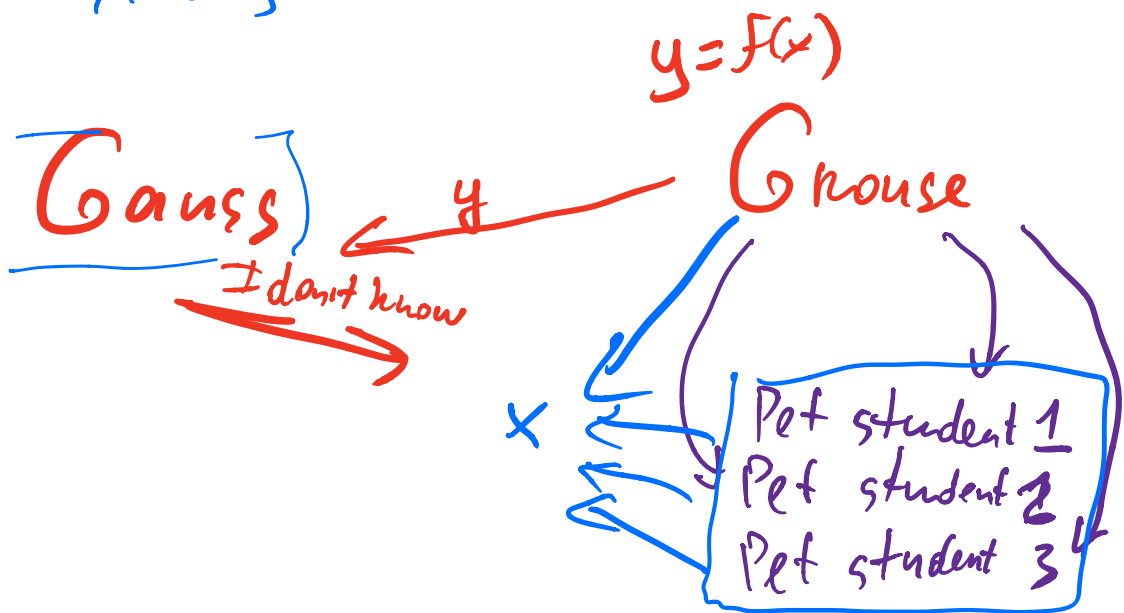 y = f(x)
Gauss
y
Grouse
I don't know
x
Pet student 1
Pet student 2
Pet student 3